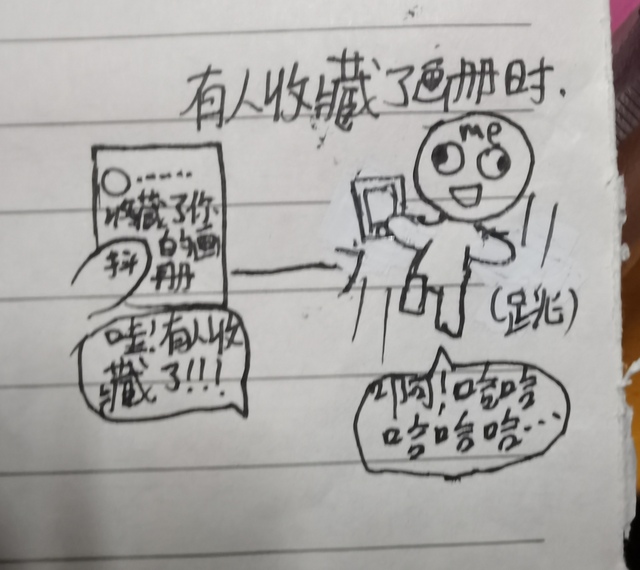 有人收藏了画册时.
me
收藏了你
的画
册
抖
哇!有人收
藏了!!!
(跳)
啊!哈哈
哈哈哈…